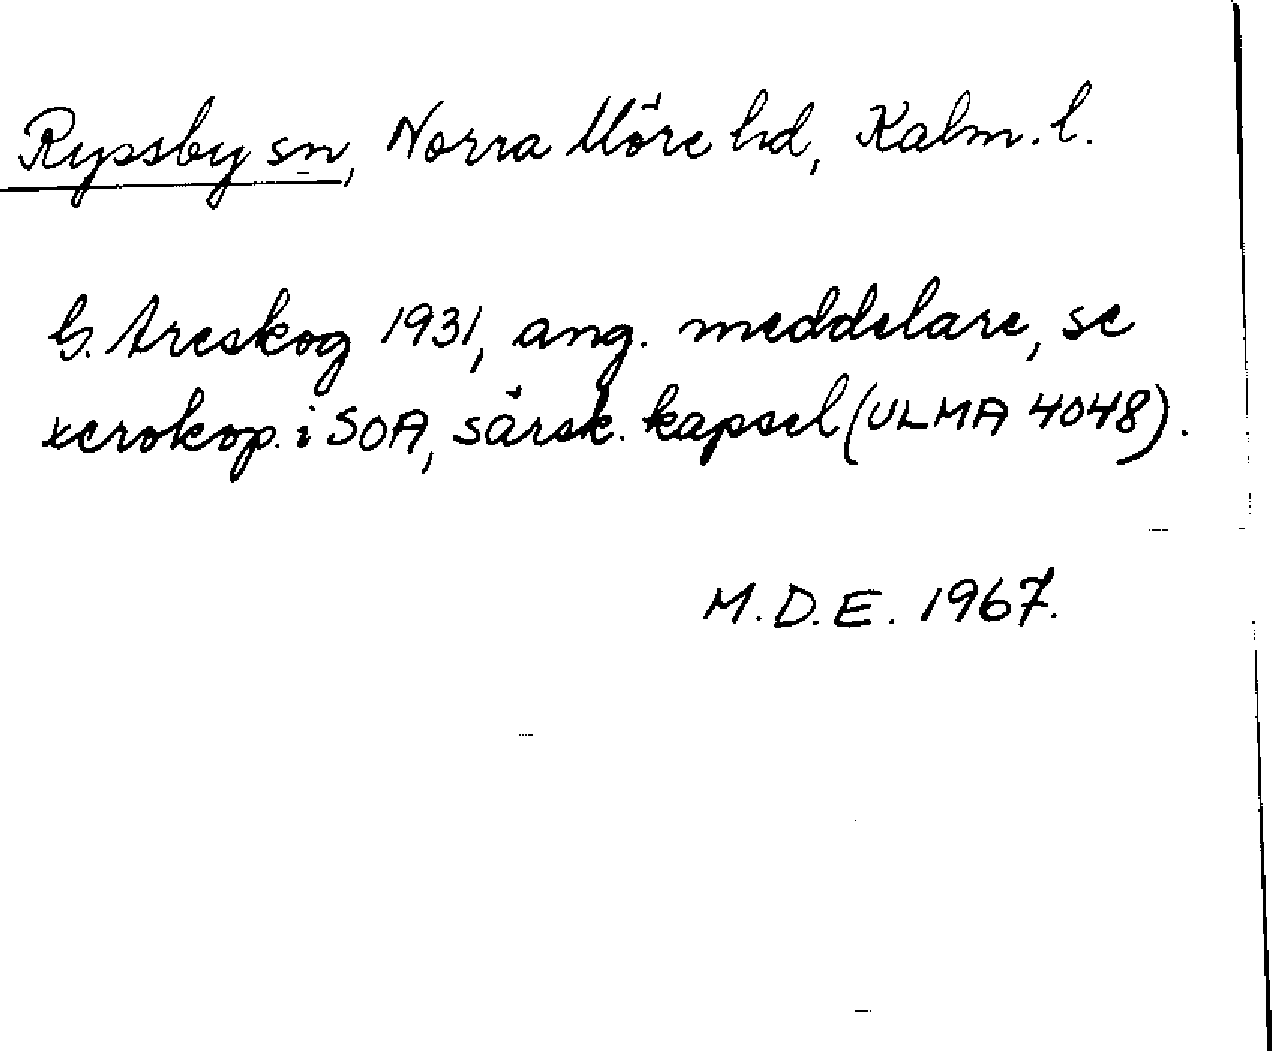 Ryssby sn, Norra Möre hd, Kalm. l.
G. Areskog 1931, ang. meddelare, se
xerokop. i SOA, särsk. kapsel (ULMA 4048).
M.D.E. 1967.